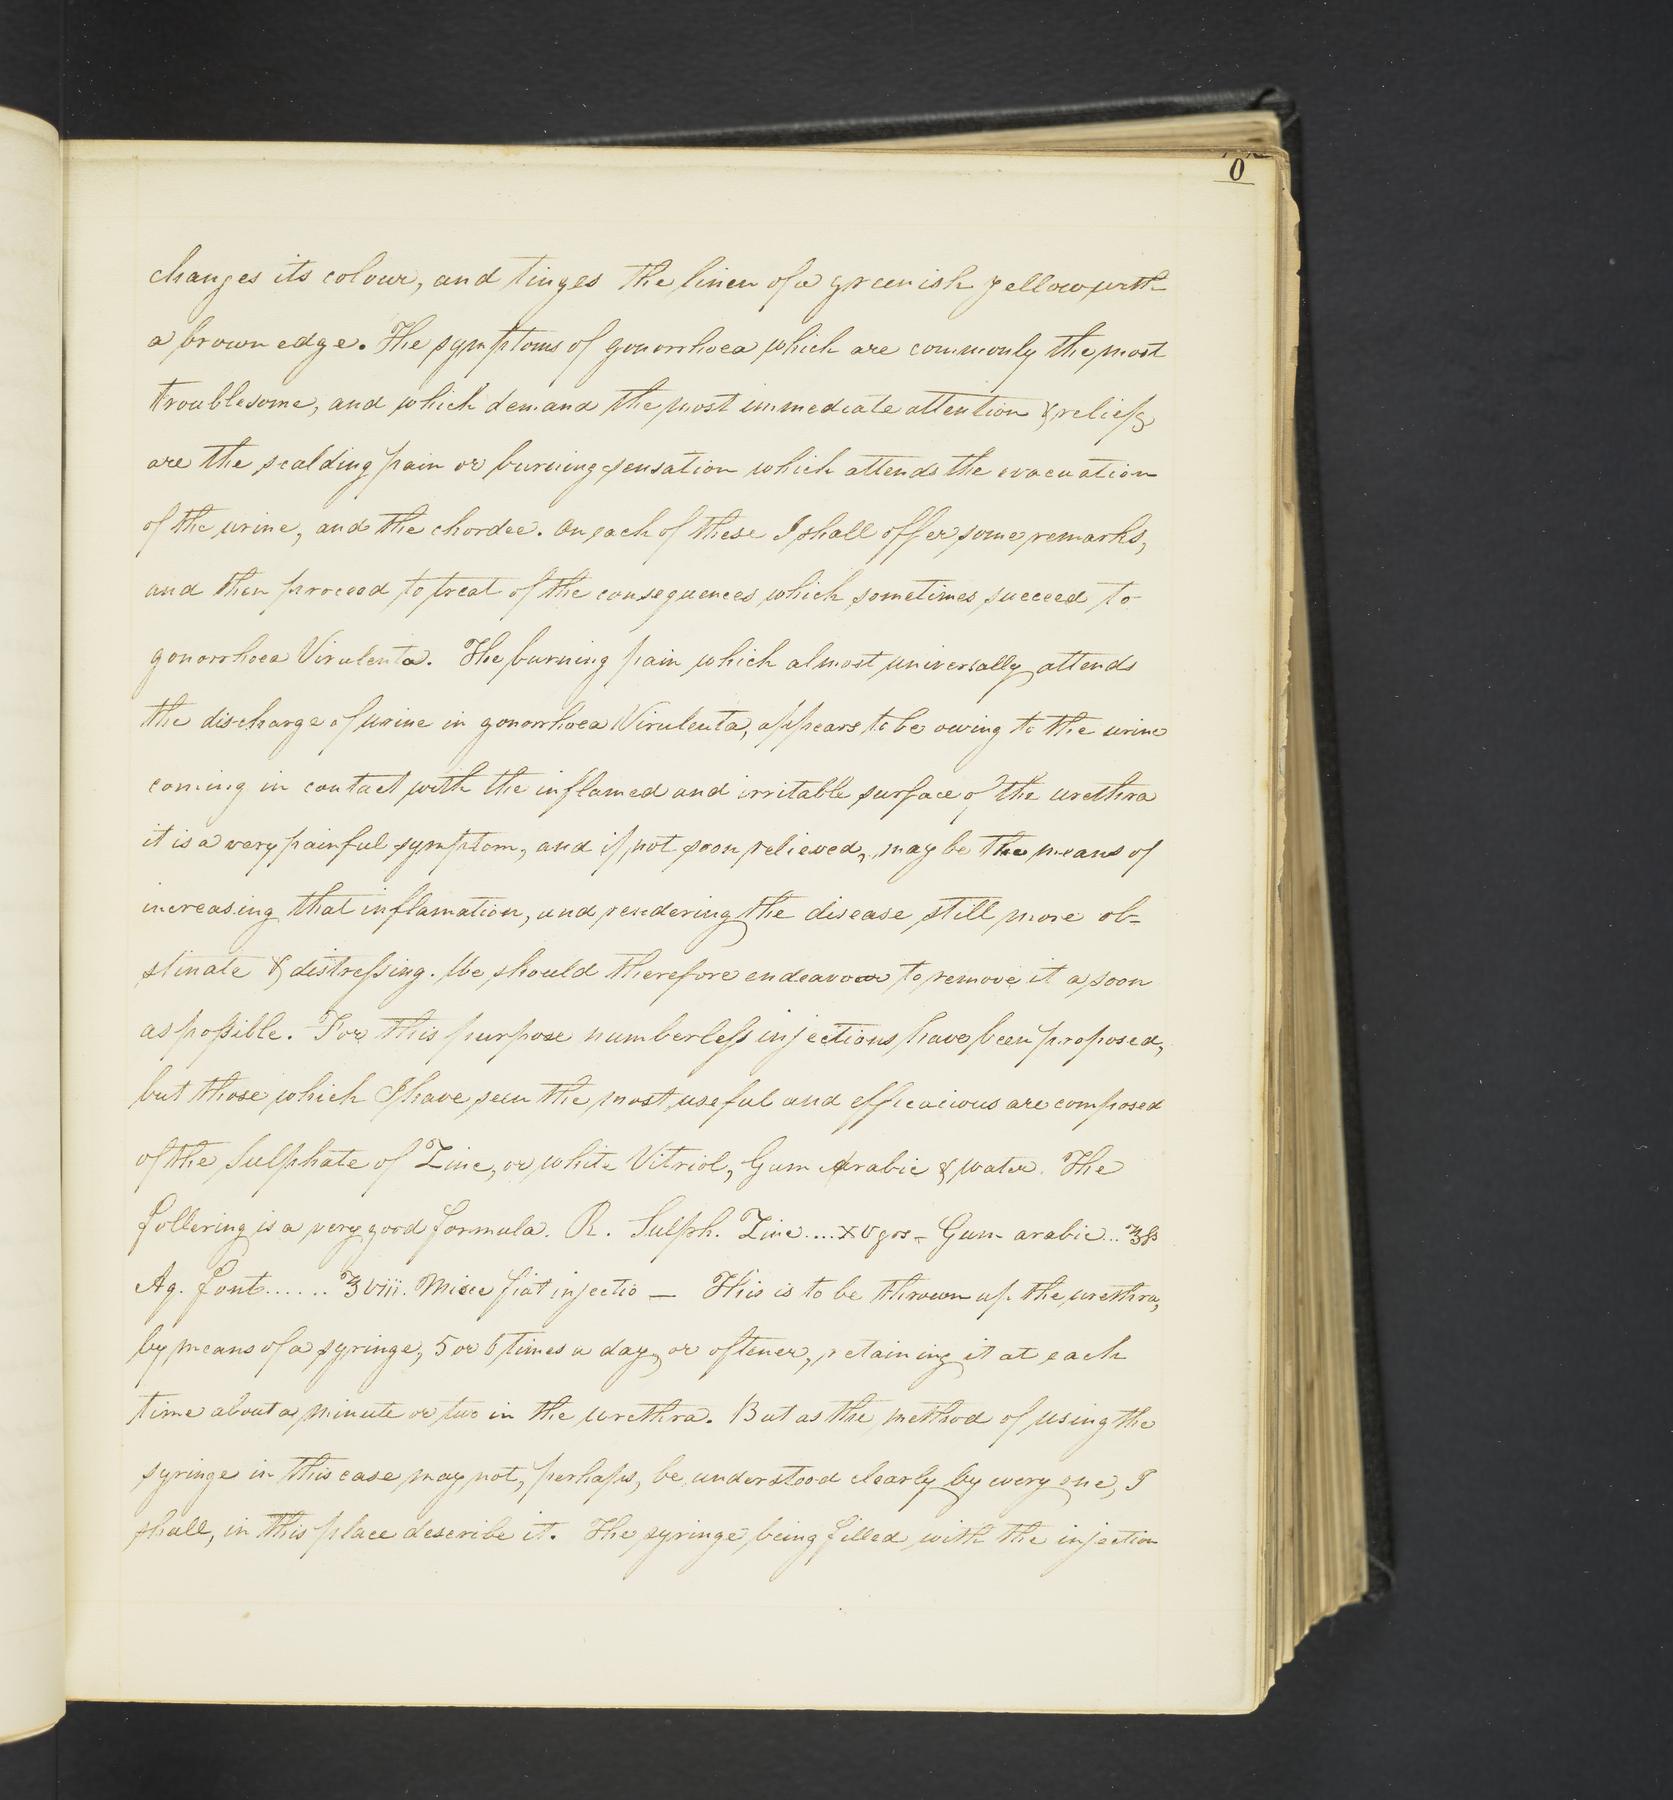 0
changes its colour, and tinges the linen of a greenish yellow with
a brown edge. The symptoms of gonorrhoea which are commonly the most
troublesome, and which demand the most immediate attention & relief,
are the scalding pain or burning sensation which attends the evacuation
of the urine, and the chordee. On each of these I shall offer some remarks,
and then proceed to treat of the consequences which sometimes succeed to
gonorrhoea Virulenta. The burning pain which almost universally attends
the discharge of urine in gonorrhoea Virulenta, appears to be owing to the urine
coming in contact with the inflamed and irritable surface of the urethra
it is a very painful symptom, and if not soon relieved, may be the means of
increasing that inflamation, and rendering the disease still more ob=
stinate & distreſsing. We should therefore endeavour to remove it a soon
as poſsible. For this purpose numberleſs injections have been proposed,
but those which I have seen the most useful and efficacious are composed
of the Sulphate of Zinc, or white Vitriol, Gum Arabic & water. The
follering is a very good formula. R. Sulph. Zinc .... xv grs - Gum arabic .. ʒſs
Aq. font ...... ℥viii. Misce fiat injectio — This is to be thrown up the urethra,
by means of a syringe, 5 or 6 times a day, or oftener, retaining it at each
time about a minute or two in the urethra. But as the method of using the
syringe in this case may not, perhaps, be understood clearly by every one, I
shall, in this place describe it. The syringe being filled with the injection